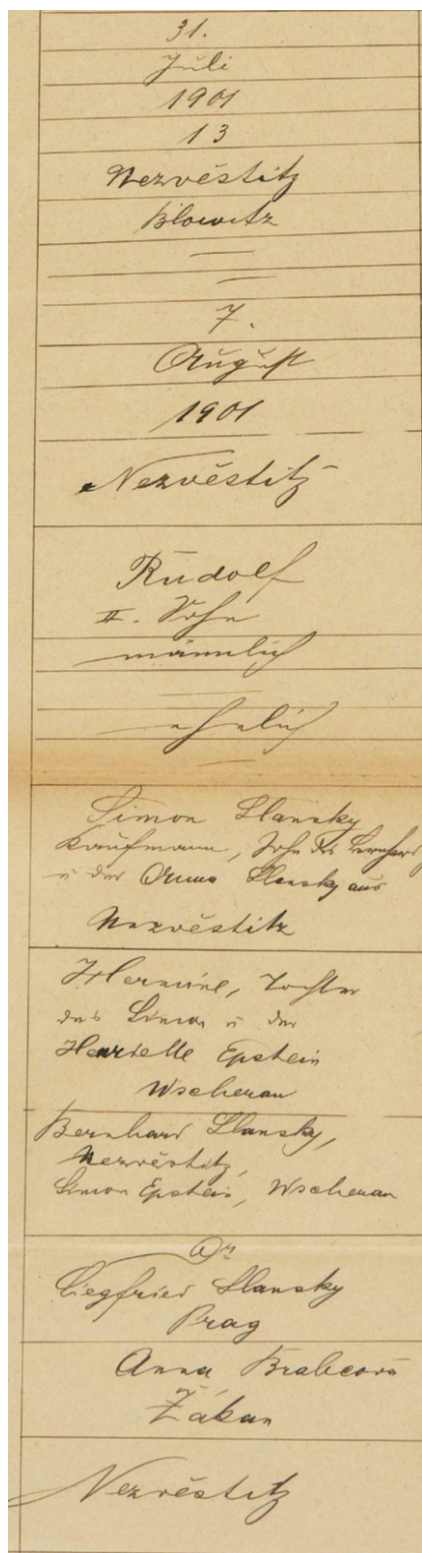 31.
Juli
1901
13
Nezvěstitz
Blowitz
7.
August
1901
Nezvěstitz
Rudolf
II. Sohn
männlich
ehelich
Simon Slansky
Kaufmann, Sohn des Bernhard
u der Anna Slansky aus
Nezvěstitz
Hermine, Tochter
des Simon u der
Henriette Epstein
Wscherau
Bernhard Slansky,
Nezvěstitz,
Simon Epstein, Wscherau
Dr
Siegfried Slansky
Prag
Anna Brabcová
Žákau
Nezvěstitz